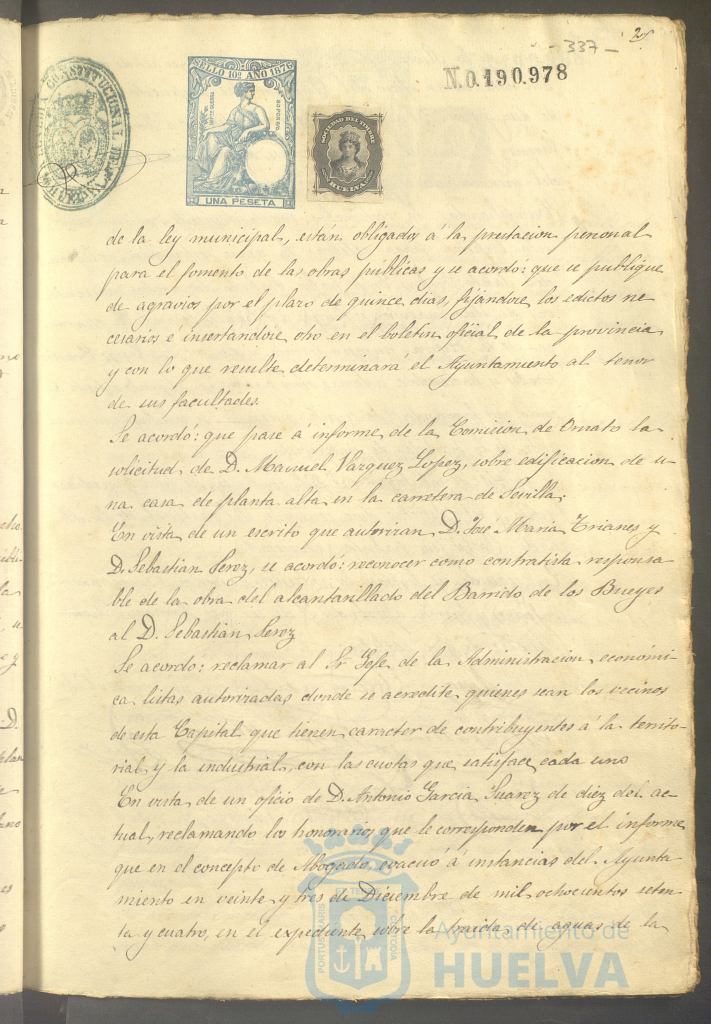 2
- 337 -
N.0.190.978
SELLO 10º AÑO 1876
UNA PESETA
SOCIEDAD DEL TIMBRE
HUELVA
de la ley municipal, están obligados á la prestacion personal
para el fomento de las obras públicas y se acordó: que se publique
de agravios por el plazo de quince dias, fijándose los edictos ne
cesarios é insertandose otro en el boletin oficial de la provincia
y con lo que resulte determinará el Ayuntamiento al tenor
de sus facultades.
Se acordó: que pase á informe de la Comision de Ornato la
solicitud de D. Manuel Vazquez Lopez, sobre edificacion de u-
na casa de planta alta en la carretera de Sevilla.
En vista de un escrito que autorizan D. José Maria Trianes y
D. Sebastian Perez, se acordó: reconocer como contratista responsa
ble de la obra del alcantarillado del Barrido de los Bueyes
al D. Sebastian Perez
Se acordó: reclamar al Sr Gefe de la Administracion económi-
ca listas autorizadas donde se acredite quienes sean los vecinos
de esta Capital que tienen caracter de contribuyentes á la territo-
rial y la industrial, con las cuotas que satisface cada uno
En vista de un oficio de D. Antonio Garcia Suarez de diez del ac-
tual, reclamando los honorarios que le corresponden por el informe
que en el concepto de Abogado evacuó á instancias del Ayunta-
miento en veinte y tres de Diciembre de mil ochocientos seten
ta y cuatro, en el expediente sobre la traida de aguas de la
PORTUS MARIS ET TERRE CUSTODIA
Ayuntamiento de
HUELVA